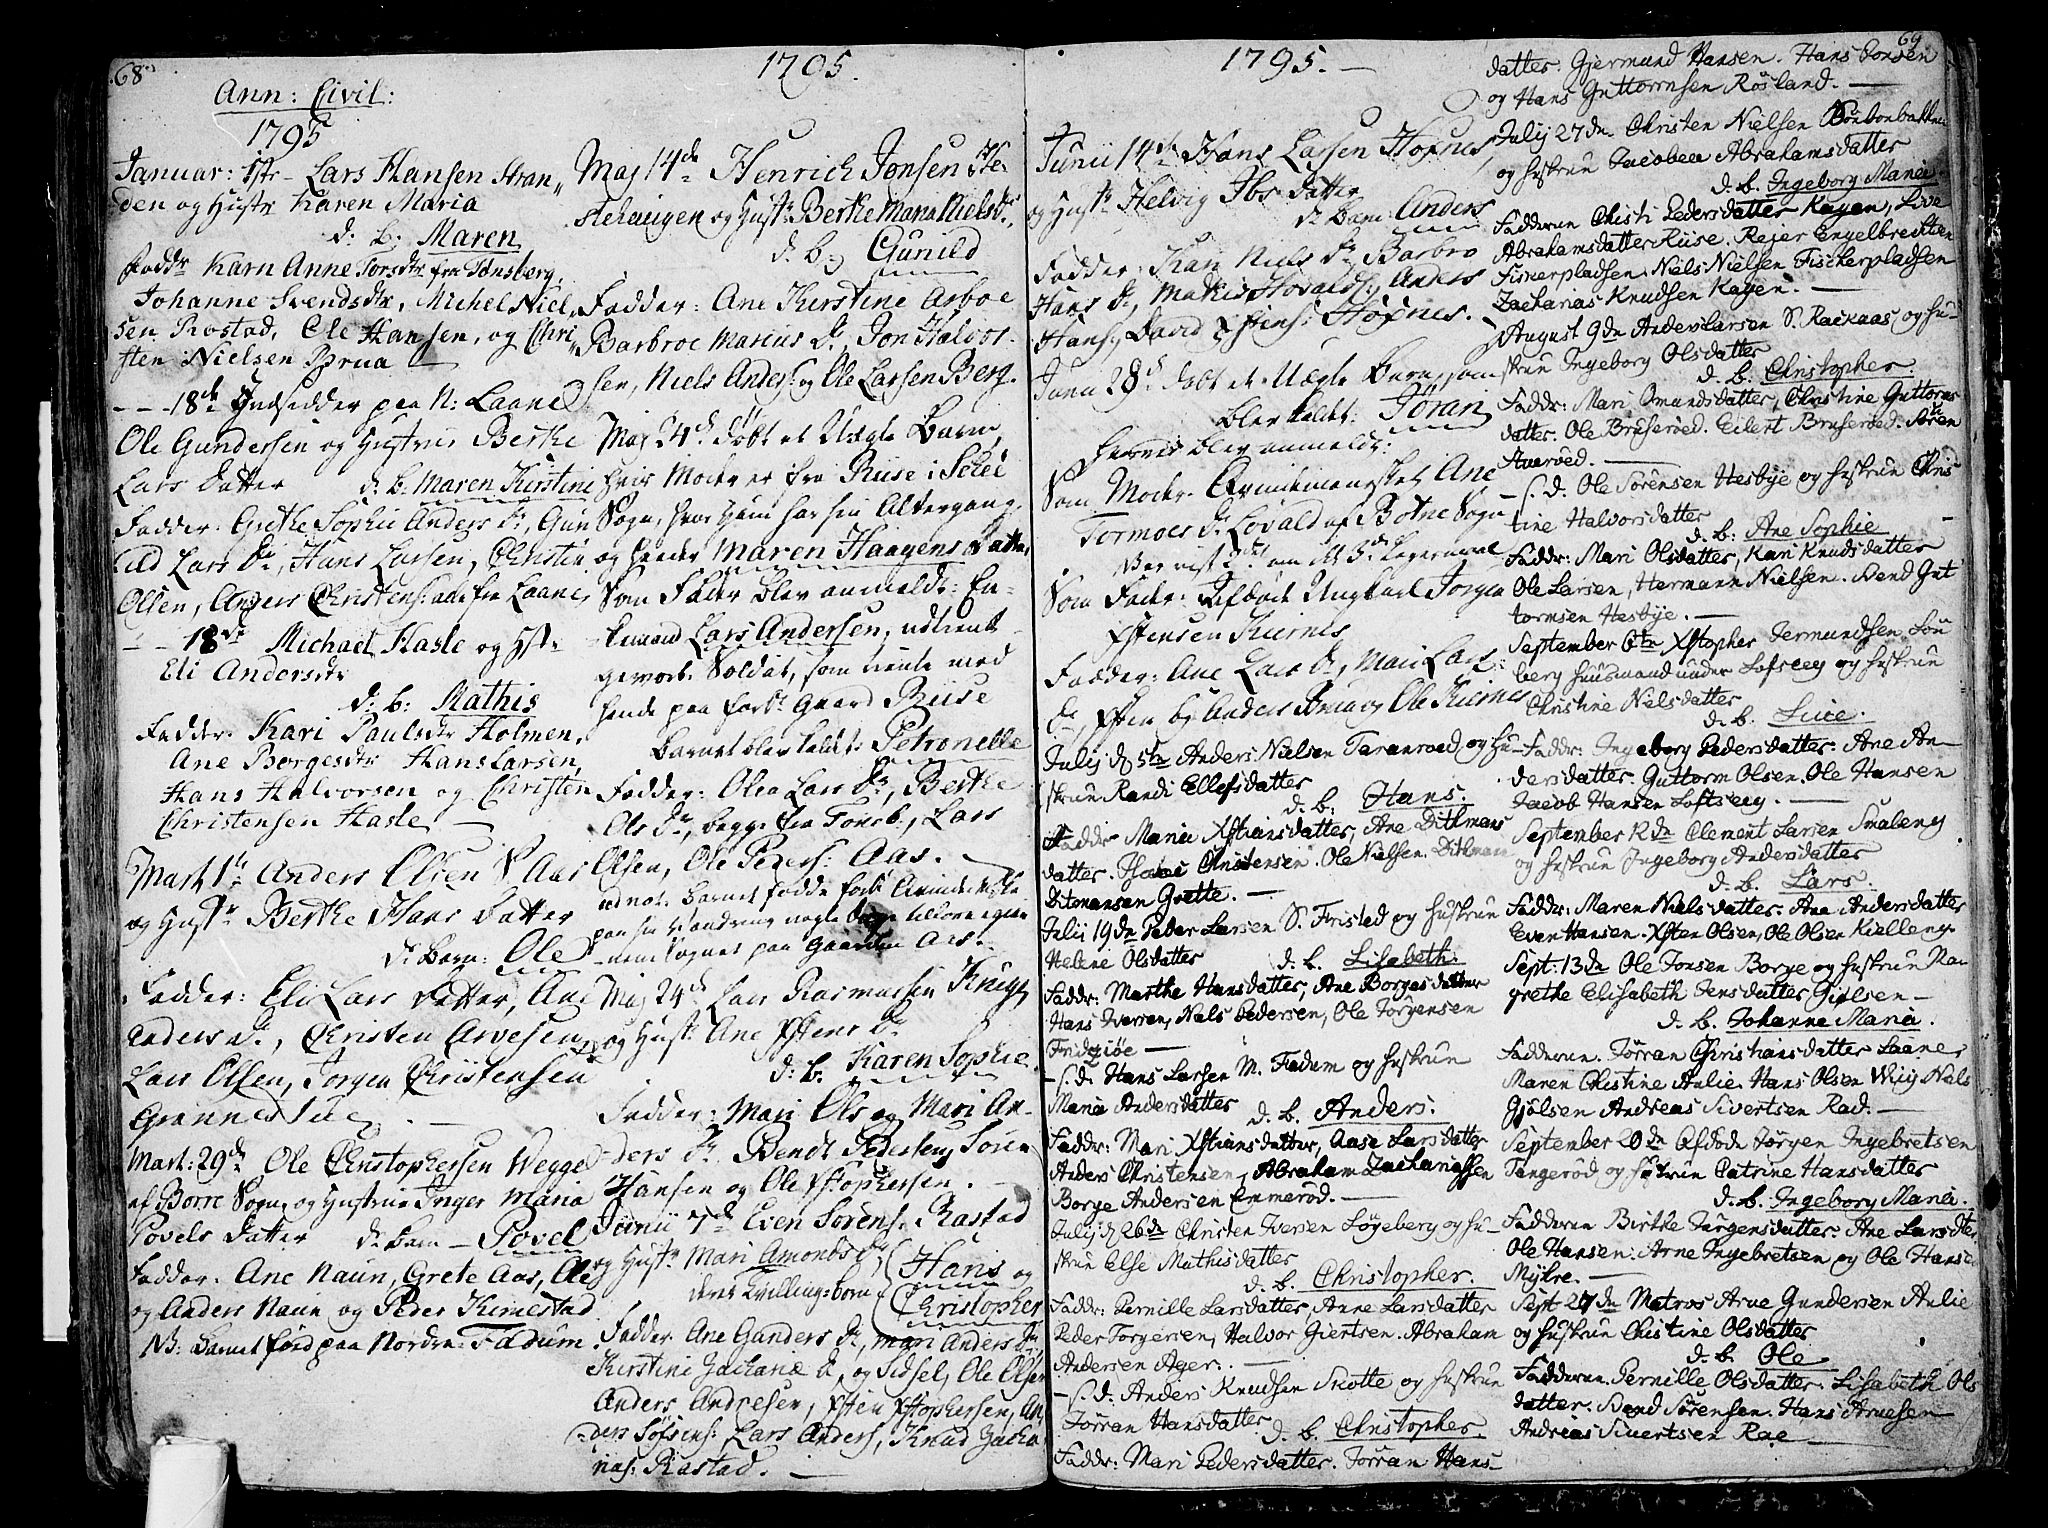 68
1795.
Ann: Civil:
1795
Januar: 1ste Lars Hansen Stran„
den og Hustr Karen Maria
d: b: Maren
Faddr Karn Anne Torsdtr fra Tønsberg,
Johanne Svendsdtr, Michel Niel„
sen Rostad, Ole Hansen, og Chri„
sten Nielsen Brua
- - - 18de Indsidder paa N: Laane
Ole Gundersen og Hustrue Berthe
Lars Datter d: b: Maren Kirstine
Fadder: Grethe Sophie Anders Dr, Gun
ild Lars Dr, Hans Larsen, Christen
Olsen, Anders Christens: alle fra Laane
- - 18de Michael Hasle og Hst:
Eli Andersdtr
d: b: Mathis
Fadder: Kari Paulsdtr Holmen,
Ane Borgesdtr Hans Larsen,
Hans Halvorsen og Christen
Christensen Hasle
Mart: 1te Anders Olsen S Aas
og Hustr Berthe Hans Datter
Dr Barn: Ole
Fadder: Eli Lars Datter, Ane
Anders Dr, Christen Arvesen,
Lars Olsen, Jorgen Christensen
Grønnestue
Mart: 29de Ole Christophersen Wegger
af Borre Sogn, og Hustrue Inger Maria
Povels Datter Dr Barn - Povel
Fadder: Ane Naun, Grete Aas, Ole
og Anders Naun og Peder Kimestad
NB: Barnet fød paa Nordre Fadum.
Maj 14de Henrich Jonsen
og Hustr Berthe Maria Nielsdr,
d: b: Gunild
Fadder: Ane Kirstine Asboe
Barbroe Marius Dr, Jon Halvor-
sen, Niels Anders: og Ole Larsen Berg.
Maj 24d døbt et Uægte Barn,
hvis Moder er fra Riise i Sem
Sogn, hvor hun har sin Altergang,
og heeder Maren Haagens Datter,
Som Fader blev anmeldt: En-
kemand Lars Andersen, udtient
gevorb: Soldat, som tiente med
hende paa forbe Gaard Riise
Barnet blev kaldet: Petronelle
Fadder: Olea Lars Dr, Berthe
Ols Dr, begge fra Tønsb:, Lars
Olsen, Ole Peders: Aas.
paa sin Vandring nogle Dage
paa Gaarden Aas.
Maj 24d Lars Rasmussen
og Hustr Ane Xstens Dr
d: b. Karen Sophie
Fadder: Mari Ols og Mari An-
ders Dr, Bendt Pedersen,
Hansen og Ole Xstophersen.
Junii 7d Even Sørens: Rastad
og Hustr Mari Amonds Dr,
deres Tvillingebørn (Hans og
(Christopher
Fadder: Ane Gunders Dr, Mari Anders Dr,
Kirstine Zachariæ Dr, og Sidsel, Ole Olsen
Anders Andresen, Xsten Xstophersen, An-
ders Lars Anders:, Knud Zacha
rias: Rastad.
1795.
Junii 14d Hans Larsen Hofnes,
og Hustr Helvig Ibs Datter
Dr Barn: Anders
Fadder: Kari Niels Dr, Barbro
Hans Dr, Mathis Hovalds:, Anders
Hans:, David Xstens: Hofnes.
Junii 28d døbt et Uægte Barn, som
blev kaldt: Jøran
blev anmeldt:
Som Moder: Qvindemenneske Ane
Tormoes Dr Lovald af Botne Sogn
Som Fader: Ungkarl Jorgen
Xstensen Kiernes
Fadder: Ane Lars Dr, Mari Lars
Dr, Anders Brua og Ole Kiernes
Julij d 5te Anders Nielsen Taranroed, og hu-
strue Randi Ellefsdatter
d. b. Hans.
Faddr Maria Xstiansdatter, Ane Ditlmans
datter. Christensen. Ole Nielsen. Ditlman
Ditmansen Grette.
Julij 19de Peder Larsen S. Fristed og hustrue
Helene Olsdatter d. b. Lisabeth.
Faddr: Marthe Hansdatter, Ane Borgesdatter
Hans Iversen, Niels Pedersen, Ole Jörgensen
Fridsiøe
- S. d. Hans Larsen M. Fadum og hustrue
Maria Andersdatter
d. b. Anders.
Faddr: Mari Xstiansdatter, Aase Larsdatter
Anders Christensen, Abraham Zachariassen
Borge Andersen Emmerød.
Julij d 26de Christen Iversen Løgeberg og hu-
strue Else Mathisdatter
d. b. Christopher.
Faddr: Pernille Larsdatter. Anne Larsdatter
Peder Torgersen, Halvor Giertsen. Abraham
Andersen Ager.
- S. d. Anders Knudsen Skotte og hustrue
Jørran Hansdatter
d. b. Christopher
Faddr: Mari Pedersdatter. Jorran Hans-
69
datter. Gjermund Hansen. Hans Jonsen
og Hans Guttormsen Røsland.
Julij 27de Christen Nielsen
og hustrue Jacobea Abrahamsdatter
d. b. Ingeborg Maria.
Fadderne Christi Pedersdatter Kagen, Live
Abrahamsdatter Riise. Rejer Engelbrecten
Fiskerpladsen. Niels Nielsen Fischerpladsen
Zacharias Knudsen Kagen.
August 9de Anders Larsen S. Rackaas og hu-
strue Ingeborg Olsdatter
d. b. Christopher.
Faddr: Mari Omundsdatter, Christine Guttorms
datter. Ole Bruserøed. Eilert Bruserød.
Averøed.
- S. d. Ole Sørensen Hesbye og hustrue Chris
tine Halvorsdatter
d. b. Ane Sophie
Faddr: Mari Olsdatter, Kari Knudsdatter
Ole Larsen, Hermann Nielsen. Bend Gut
tormsen Hesbye.
September 6te Xstopher Jermundsen Lou
berg huusmand under Loftseey og hustrue
Christine Nielsdatter
d. b. Live.
Faddr: Ingeborg Pedersdatter. Ane An-
dersdatter. Guttorm Olsen. Ole Hansen
Jacob Hansen Loftseey.
September 12de Clement Larsen Smaleng
og hustrue Ingeborg Andersdatter
d. b. Lars.
Faddr: Maren Nielsdatter. Ane Andersdatter
Even Hansen. Xsten Olsen, Ole Olsen Kielleng.
Sept: 13de Ole Jonsen Borge og hustrue Mar
grethe Elisabeth Jensdatter Giølsen
d. b. Johanne Maria.
Fadderne. Jørran Christiansdatter Laane
Maren Christine Aulie. Hans Olsen Niels
Gjölsen Andreas Sivertsen Rad.
September 20de Afdøde Jørgen Ingebretsen
Tangerød og hustrue Catrine Hansdatter
d. b. Ingeborg Maria.
Fadderne Birthe Jørgensdatter. Ane Larsdtr,
Ole Hansen. Arne Ingebretsen og Ole Hansen
Myhre.
Sept 27de Matros Arne Gundersen Aulie
og hustrue Christine Olsdatter
d. b. Ole
Fadderne. Pernille Olsdatter. Lisabeth Ols
datter. Bend Sørensen. Hans Arnesen
Andreas Sivertsen Rae